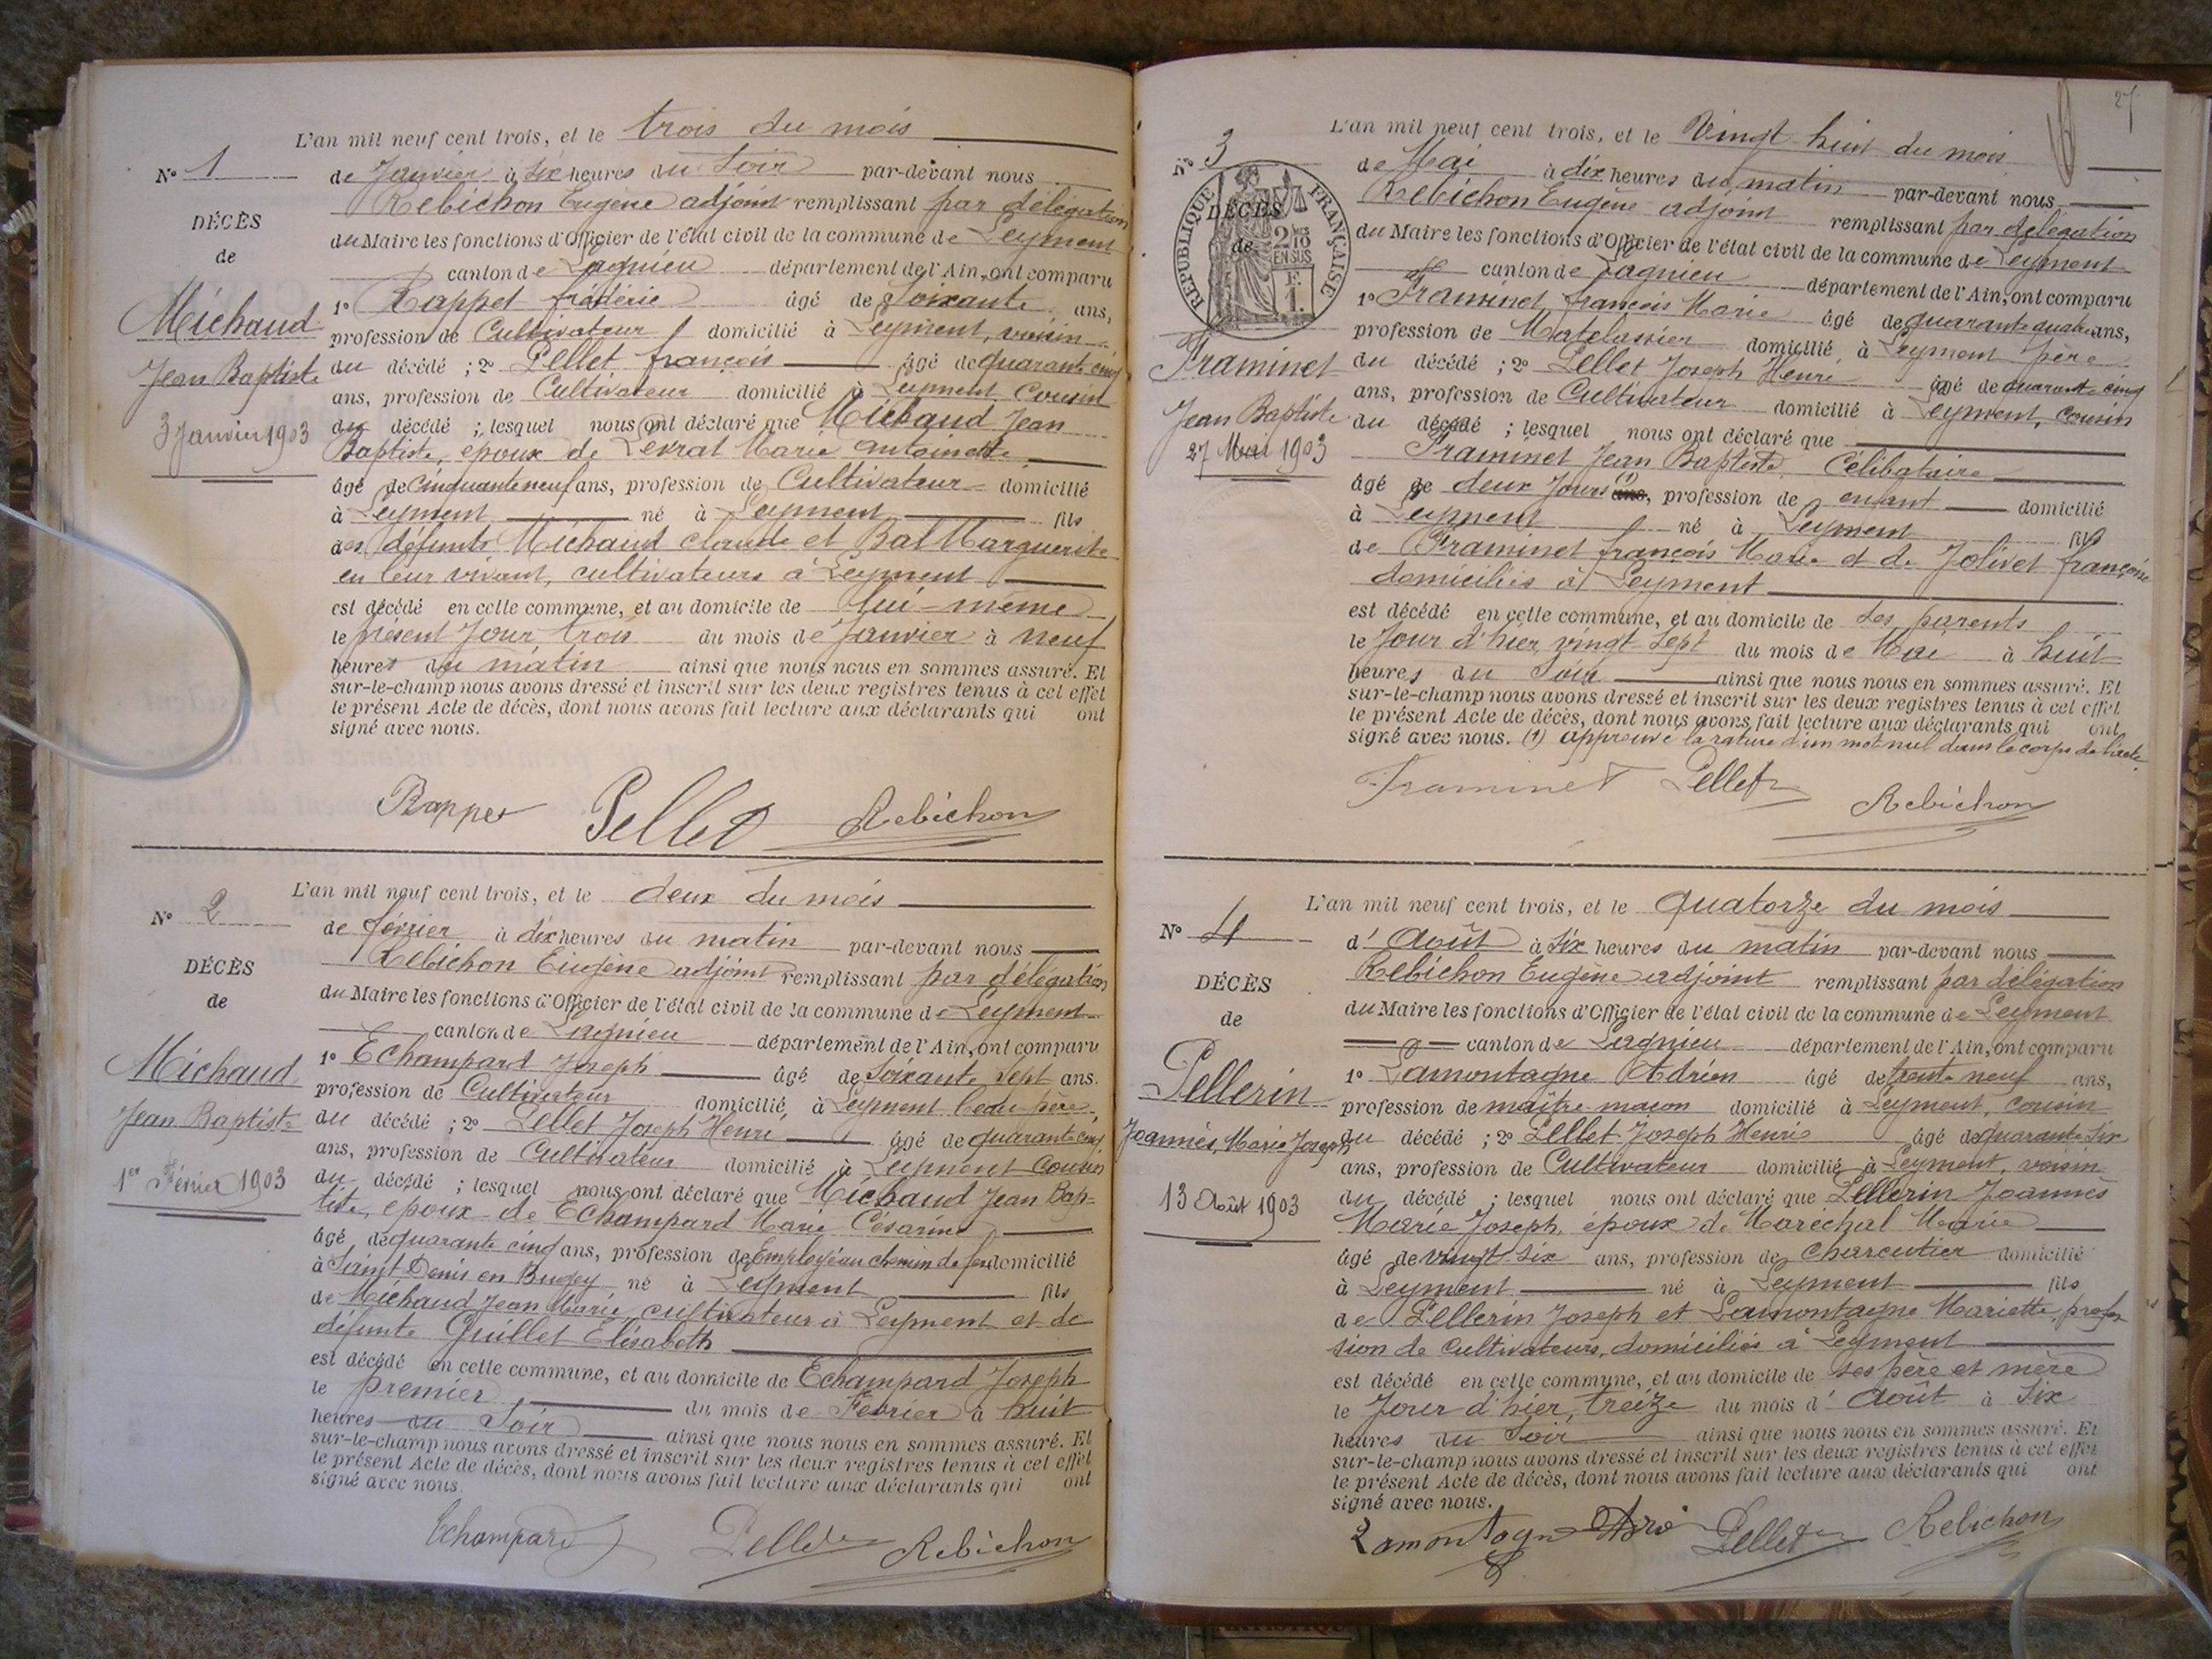 L'an mil neuf cent trois, et le trois du mois
N° 1
de Janvier à six heures du soir par-devant nous
Rebichon Eugène adjoint remplissant par délégation
DÉCÈS
du Maire les fonctions d'Officier de l'état civil de la commune de Leyment
de
canton de Lagnieu département de l'Ain, ont comparu
1° Rappet frédéric âgé de soixante ans,
Michaud
profession de Cultivateur domicilié à Leyment, voisin
Jean Baptiste
du décédé ; 2° Pellet françois âgé de quarante cinq
ans, profession de Cultivateur domicilié à Leyment, Cousin
3 Janvier 1903
du décédé ; lesquel nous ont déclaré que Michaud Jean
Baptiste, époux de Levrat Marie antoinette
âgé de Cinquante neuf ans, profession de Cultivateur domicilié
à Leyment né à Leyment fils
des défunts Michaud claude et Bal Marguerite
en leur vivant, cultivateurs à Leyment
est décédé en cette commune, et au domicile de lui-même
le présent Jour, trois du mois de Janvier à neuf
heures du matin ainsi que nous nous en sommes assuré. Et
sur-le-champ nous avons dressé et inscrit sur les deux registres tenus à cet effet
le présent Acte de décès, dont nous avons fait lecture aux déclarants qui ont
signé avec nous.
Rappet Pellet Rebichon
L'an mil neuf cent trois, et le deux du mois
N° 2
de février à dix heures du matin par-devant nous
Rebichon Eugène adjoint remplissant par délégation
DÉCÈS
du Maire les fonctions d'Officier de l'état civil de la commune de Leyment
de
canton de Lagnieu département de l'Ain, ont comparu
1° Echampard Joseph âgé de soixante sept ans.
Michaud
profession de Cultivateur domicilié à Leyment beau père
Jean Baptiste
du décédé ; 2° Pellet Joseph Henri âgé de quarante cinq
ans, profession de Cultivateur domicilié à Leyment Cousin
1er Février 1903
du décédé ; lesquel nous ont déclaré que Michaud Jean Bap-
tiste, époux de Echampard Marie Césarine
âgé de quarante cinq ans, profession de Employé au chemin de fer domicilié
à Saint Denis en Bugey né à Leyment fils
de Michaud Jean Marie, cultivateur à Leyment et de
défunte Guillet Elisabeth
est décédé en cette commune, et au domicile de Echampard Joseph
le premier du mois de Février à huit
heures du Soir ainsi que nous nous en sommes assuré. Et
sur-le-champ nous avons dressé et inscrit sur les deux registres tenus à cet effet
le présent Acte de décès, dont nous avons fait lecture aux déclarants qui ont
signé avec nous.
Echampard Pellet Rebichon
27
L'an mil neuf cent trois, et le Vingt-huit du mois
N° 3
de Mai à dix heures du matin par-devant nous
RÉPUBLIQUE FRANÇAISE
2/10 EN SUS
F. 1.
Rebichon Eugène adjoint remplissant par délégation
DÉCÈS
du Maire les fonctions d'Officier de l'état civil de la commune de Leyment
de
canton de Lagnieu département de l'Ain, ont comparu
1° Framinet, françois Marie âgé de quarante quatre ans,
profession de Matelassier domicilié à Leyment père
Framinet
du décédé ; 2° Pellet Joseph Henri âgé de quarante cinq
Jean Baptiste
ans, profession de Cultivateur domicilié à Leyment, cousin
27 Mai 1903
du décédé ; lesquel nous ont déclaré que
Framinet Jean Baptiste, Célibataire
âgé de deux Jours (1) ans, profession de enfant domicilié
à Leyment né à Leyment fils
de Framinet françois Marie et de Jolivet françoise
domiciliés à Leyment
est décédé en cette commune, et au domicile de ses parents
le Jour d'hier vingt-sept du mois de Mai à huit
heures du Soir ainsi que nous nous en sommes assuré. Et
sur-le-champ nous avons dressé et inscrit sur les deux registres tenus à cet effet
le présent Acte de décès, dont nous avons fait lecture aux déclarants qui ont
signé avec nous. (1) approuvé la rature d'un mot nul dans le corps de l'acte.
Framinet Pellet Rebichon
L'an mil neuf cent trois, et le Quatorze du mois
N° 4
d' Août à six heures du matin par-devant nous
Rebichon Eugène adjoint remplissant par délégation
DÉCÈS
du Maire les fonctions d'Officier de l'état civil de la commune de Leyment
de
canton de Lagnieu département de l'Ain, ont comparu
1° Lamontagne Adrien âgé de trente neuf ans,
Pellerin
profession de maître maçon domicilié à Leyment, cousin
Joannès, Marie Joseph
du décédé ; 2° Pellet Joseph Henri âgé de quarante six
ans, profession de Cultivateur domicilié à Leyment, voisin
13 Août 1903
du décédé ; lesquel nous ont déclaré que Pellerin Joannès
Marie Joseph, époux de Maréchal Marie
âgé de vingt-six ans, profession de charcutier domicilié
à Leyment né à Leyment fils
de Pellerin Joseph et Lamontagne Mariette, profes
sion de cultivateurs, domiciliés à Leyment
est décédé en cette commune, et au domicile de ses père et mère
le Jour d'hier, treize du mois d' Août à six
heures du Soir ainsi que nous nous en sommes assuré. Et
sur-le-champ nous avons dressé et inscrit sur les deux registres tenus à cet effet
le présent Acte de décès, dont nous avons fait lecture aux déclarants qui ont
signé avec nous.
Lamontagne Pellet Rebichon